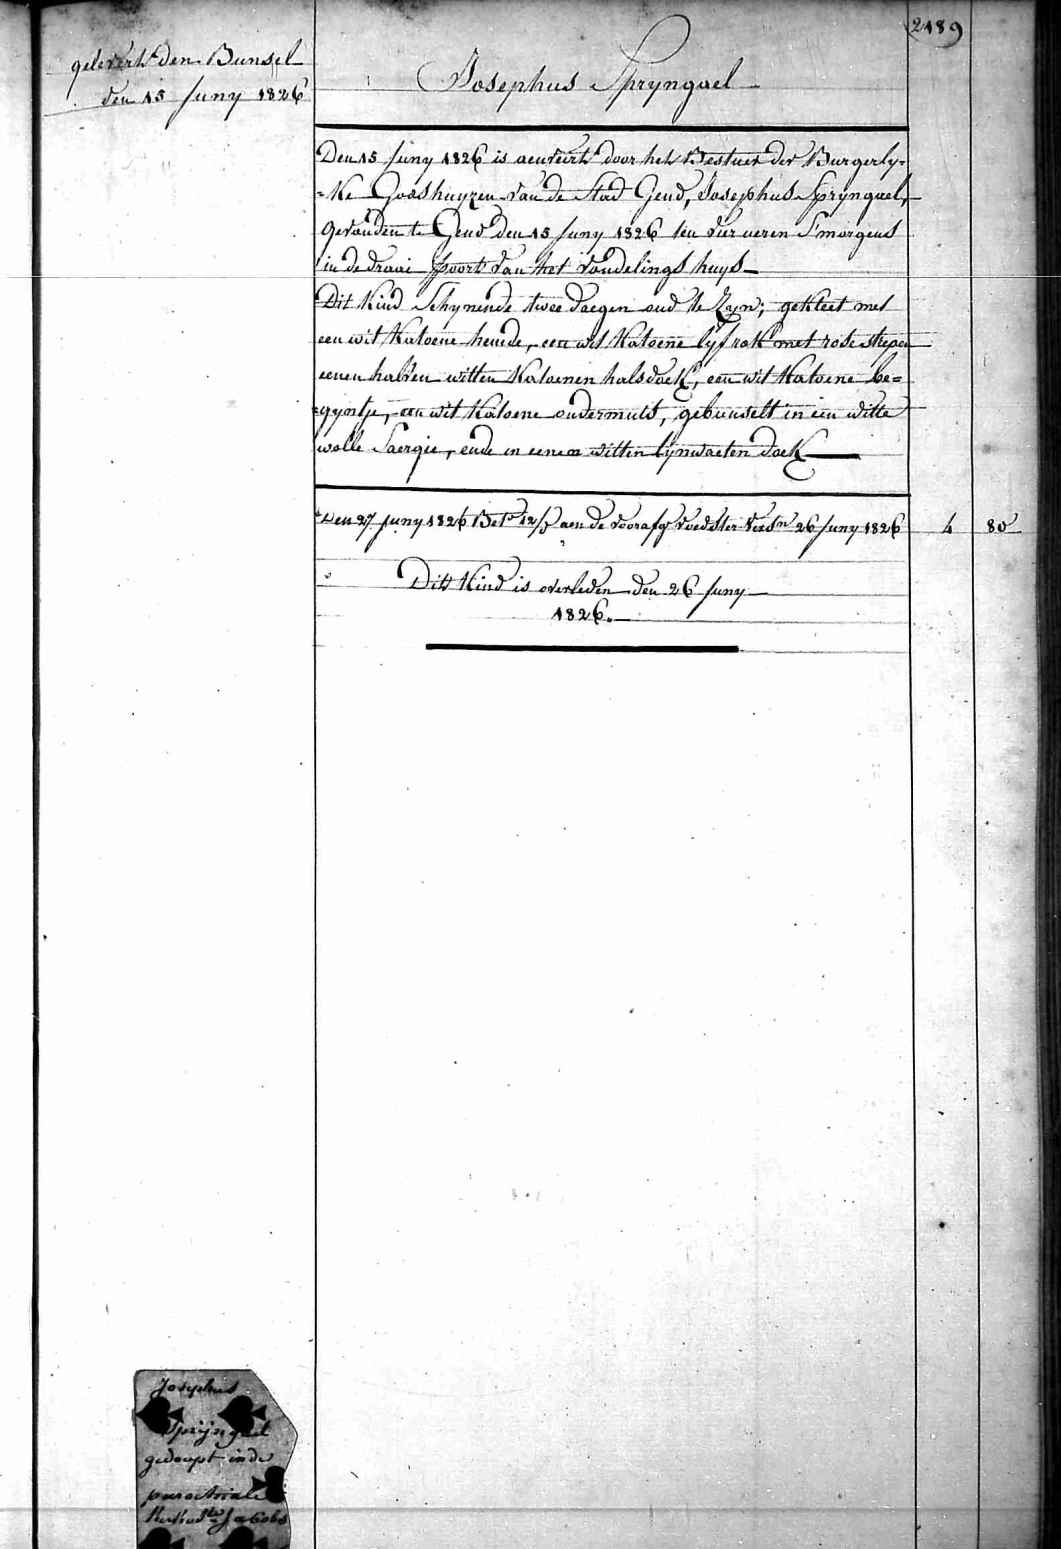 2189
gelevert den Bunsel
den 15 Juny 1826
Josephus Spryngael
Den 15 Juny 1826 is aenveirt door het Bestuer der Burgerly=
=ke Godshuyzen van de Stad Gend, Josephus Spryngael,
gevonden te Gend den 15 Juny 1826 ten vier ueren S'morgens
in de draai poort van het vondelings huys
Dit Kind Schynende twee daegen oud te Zyn; gekleet met
een wit Katoene hemde, een wit Katoene lyfrok met rose strepen
eenen halven witten Katoenen halsdoek, een wit Katoene be=
=gyntje, een wit Katoene ondermuts, gebunselt in een witte
wolle Saergie, ende in eenen witten lynwaeten doek
Den 27 Juny 1826 Bet. 12/3 aen de voorafg. voedster 26 Juny 1826 4 80
Dit Kind is overleden den 26 Juny
1826.
Josephus
Sprijngael
gedoopt in de
parochiale
Kerke Ste Jacobs